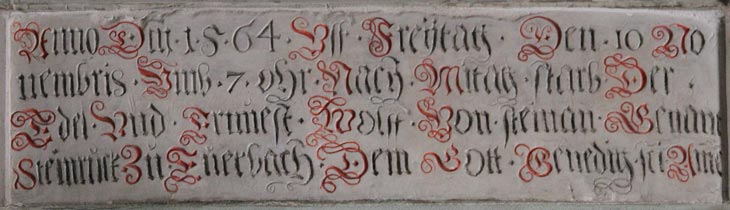 Anno Dni · 1564 · Vff · Freÿtag · Den · 10 No
uembris · Vmb · 7 · vhr · Nach Mitag · starb Der ·
Edel · Vnd · Ernuest · Wolff · Von · steinau · Genant
Steinrück Zu Euerbach · Dem Gott · Genedig sei Ame